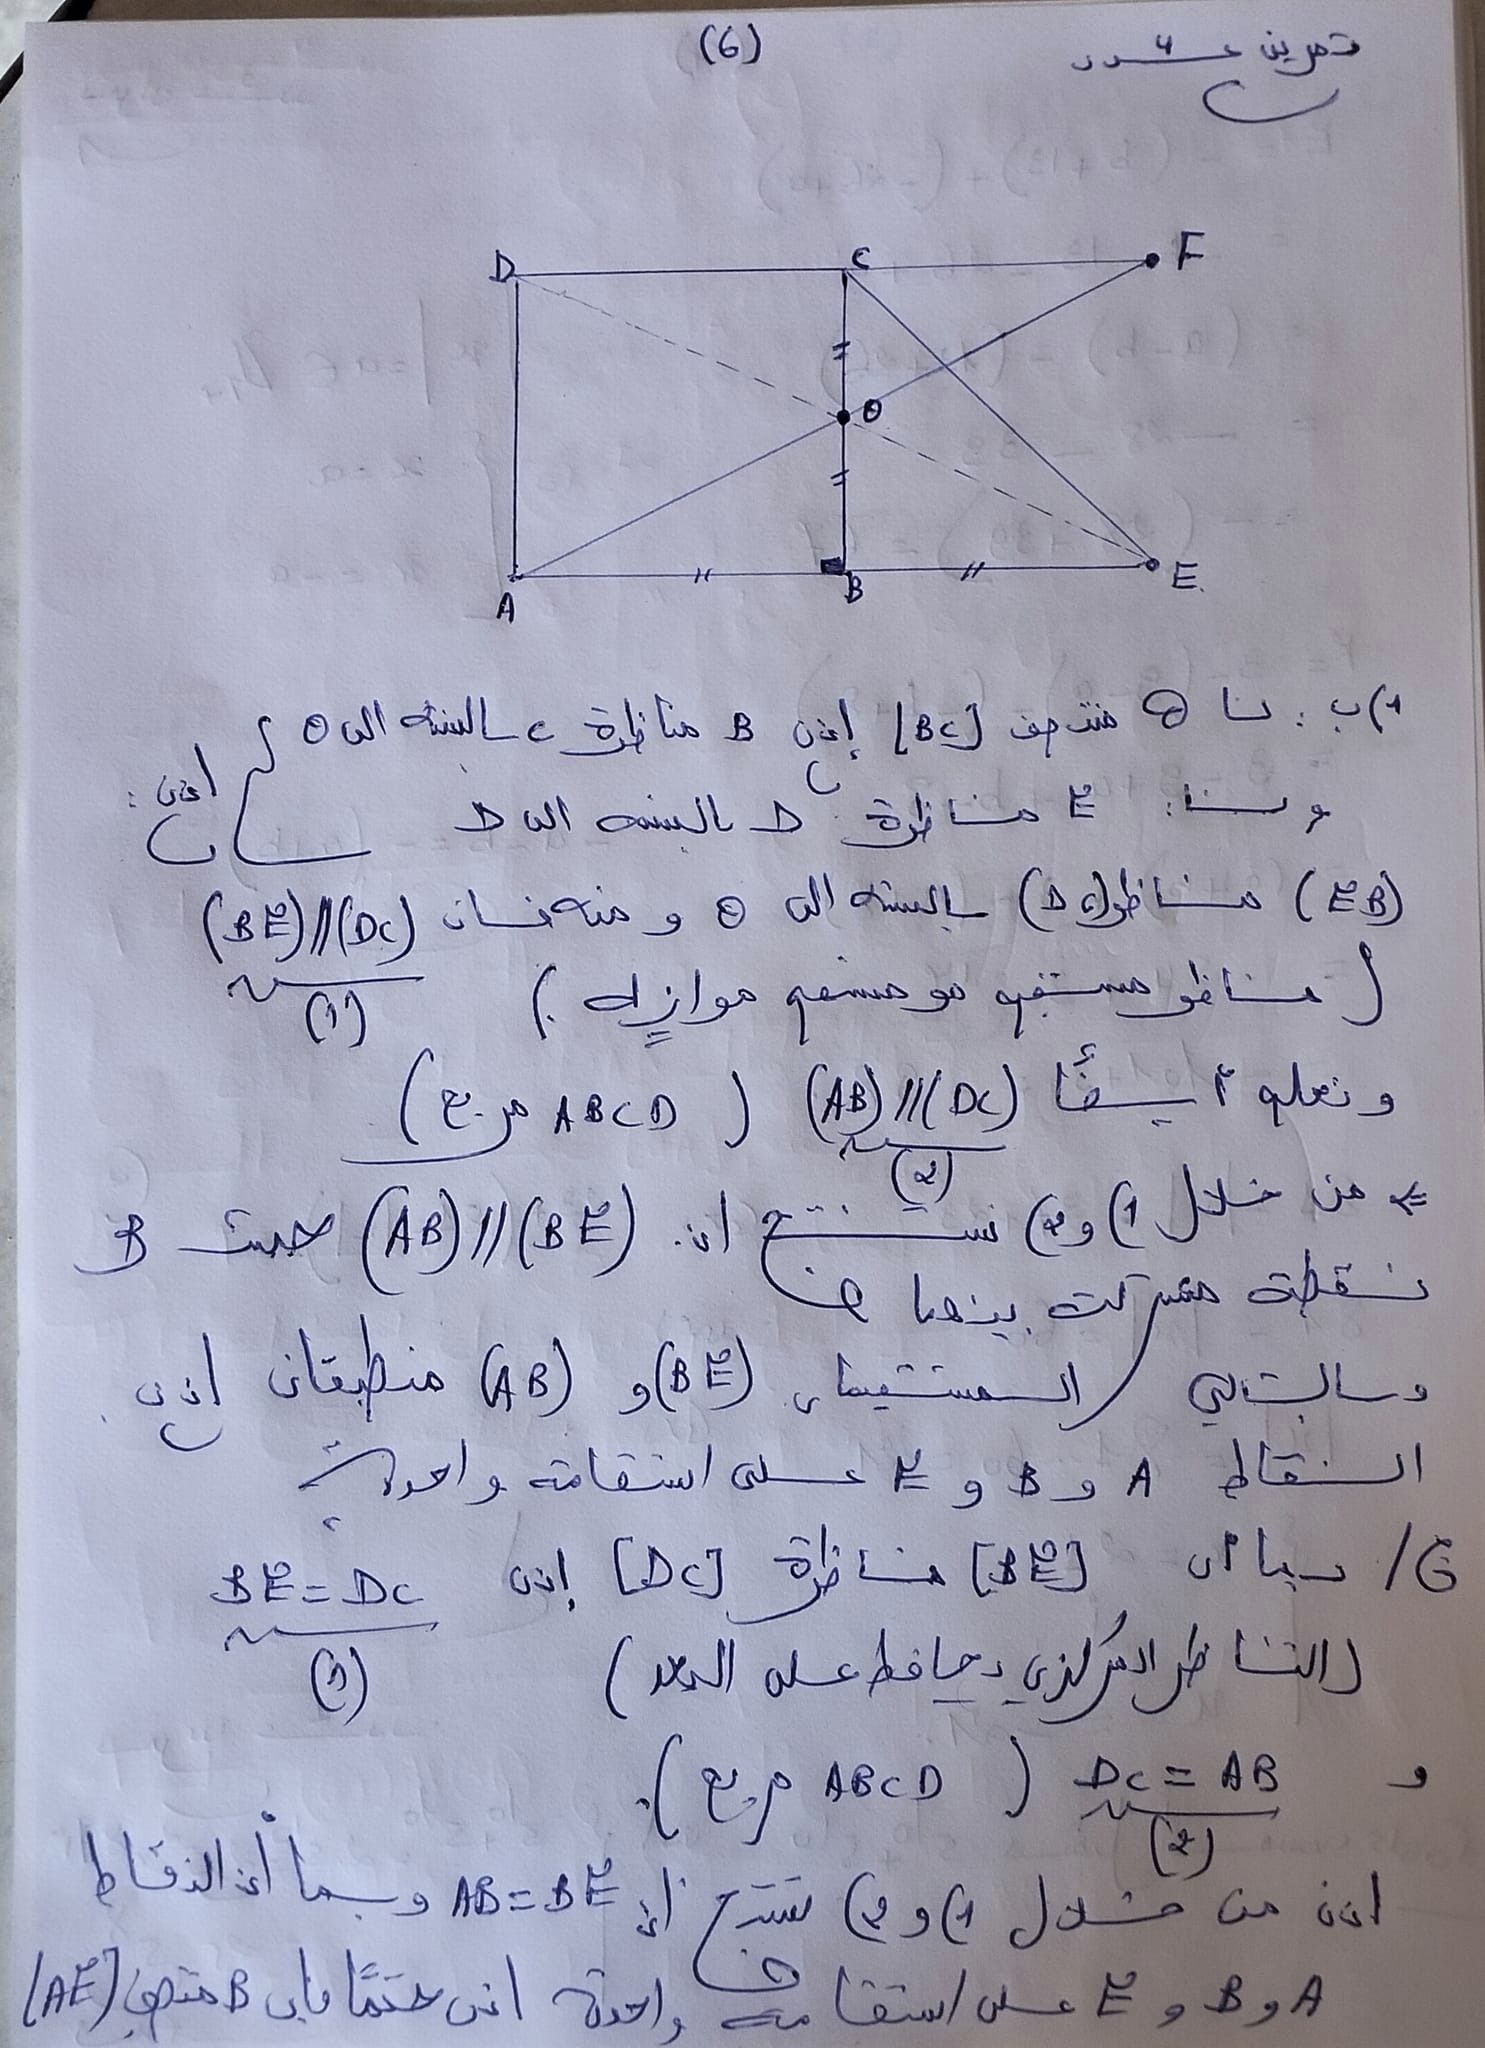 (6)
تمرين عــدد 4
D C F
O
A B E
1) ب : لنا O منتصف [BC] إذن B مناظرة C بالنسبة الى O
ولنا : E مناظرة D بالنسبة الى D اذن :
(EB) مناظر (DC) بالنسبة الى O و منه فان (BE)//(DC)
( مناظر مستقيم هو مستقيم موازٍ له ) (1)
و نعلم أيضًا (AB)//(DC) ( ABCD مربع )
(2)
من خلال 1) و 2) نستنتج ان (AB)//(BE) حيث B
نقطة مشتركة بينهما
وبالتالي المستقيمان (BE) و (AB) منطبقان اذن
النقاط A و B و E على استقامة واحدة
ج/ بما أن [BE] مناظرة [DC] إذن BE=DC
(التناظر المركزي يحافظ على البعد) (1)
و DC=AB ( ABCD مربع ).
(2)
اذن من خلال 1) و 2) نستنتج أن AB=BE وبما أن النقاط
A و B و E على استقامة واحدة اذن حتمًا فإن B منتصف [AE]